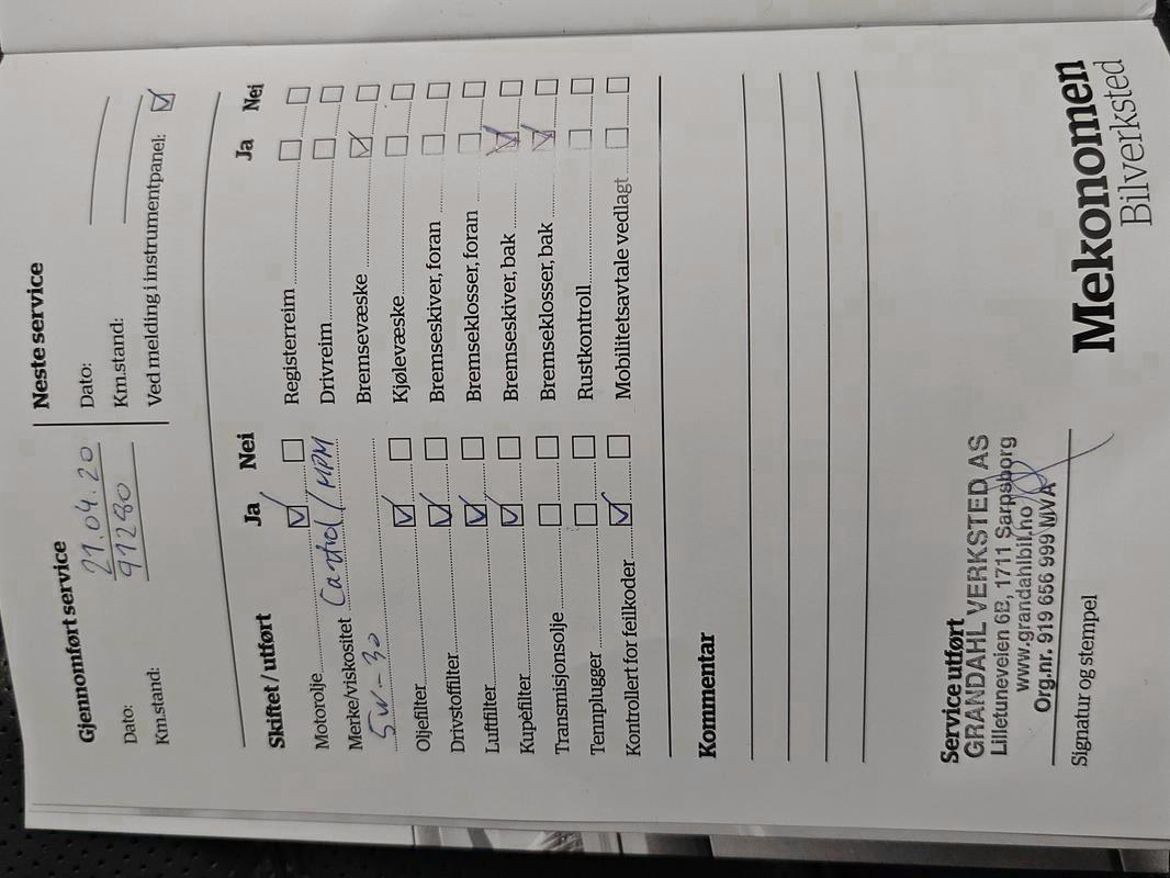 Gjennomført service
Dato: 21.04.20
Km.stand: 91280
Neste service
Dato:
Km.stand:
Ved melding i instrumentpanel:
Skiftet / utført Ja Nei
Motorolje
Merke/viskositet Castrol / MPM
5w-30
Oljefilter
Drivstoffilter
Luftfilter
Kupefilter
Transmisjonsolje
Tennplugger
Kontrollert for feilkoder
Ja Nei
Registerreim
Drivreim
Bremsevæske
Kjølevæske
Bremseskiver, foran
Bremseklosser, foran
Bremseskiver, bak
Bremseklosser, bak
Rustkontroll
Mobilitetsavtale vedlagt
Kommentar
Service utført
GRANDAHL VERKSTED AS
Lilletuneveien 6B, 1711 Sarpsborg
www.grandahlbil.no
Org.nr. 919 656 999 MVA
Signatur og stempel
Mekonomen
Bilverksted